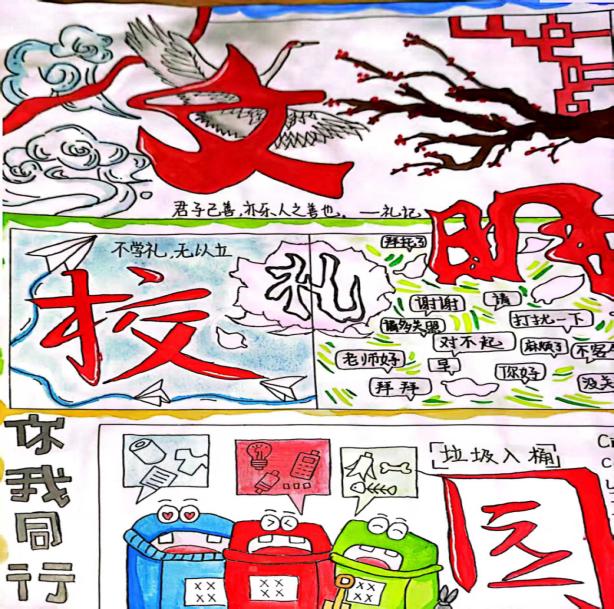 文
君子己善,亦乐人之善也。——礼记
明
不学礼,无以立
校
礼
拜托了
谢谢
请
请多关照
打扰一下
对不起
老师好
麻烦了
不客气
早
你好
拜拜
没关
你我同行
[垃圾入桶]
园
XX
XX
XX
XX
XX
XX